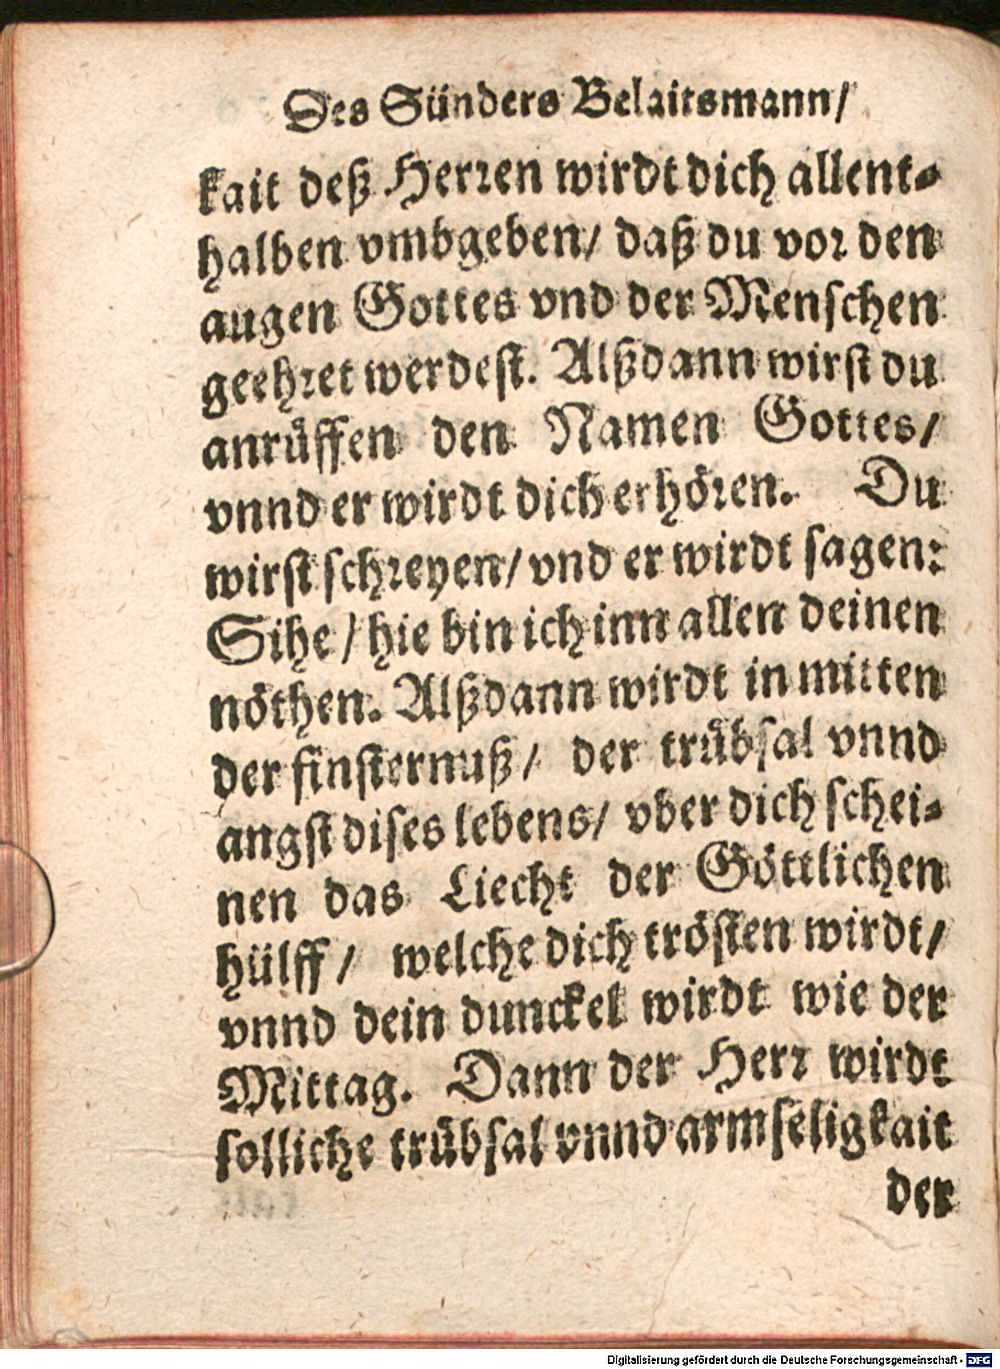 Des Sünders Belaitsmann/
kait deß Herren wirdt dich allent⸗
halben vmbgeben/ daß du vor den
augen Gottes vnd der Menschen
geehret werdest. Alßdann wirst du
anrůffen den Namen Gottes/
vnnd er wirdt dich erhören. Du
wirst schreyen/ vnd er wirdt sagen:
Sihe/ hie bin ich inn allen deinen
nöthen. Alßdann wirdt in mitten
der finsternuß/ der trůbsal vnnd
angst dises lebens/ vber dich schei⸗
nen das Liecht der Göttlichen
hülff/ welche dich trösten wirdt/
vnnd dein dunckel wirdt wie der
Mittag. Dann der Herr wirdt
solliche trůbsal vnnd armseligkait
der
Digitalisierung gefördert durch die Deutsche Forschungsgemeinschaft - DFG